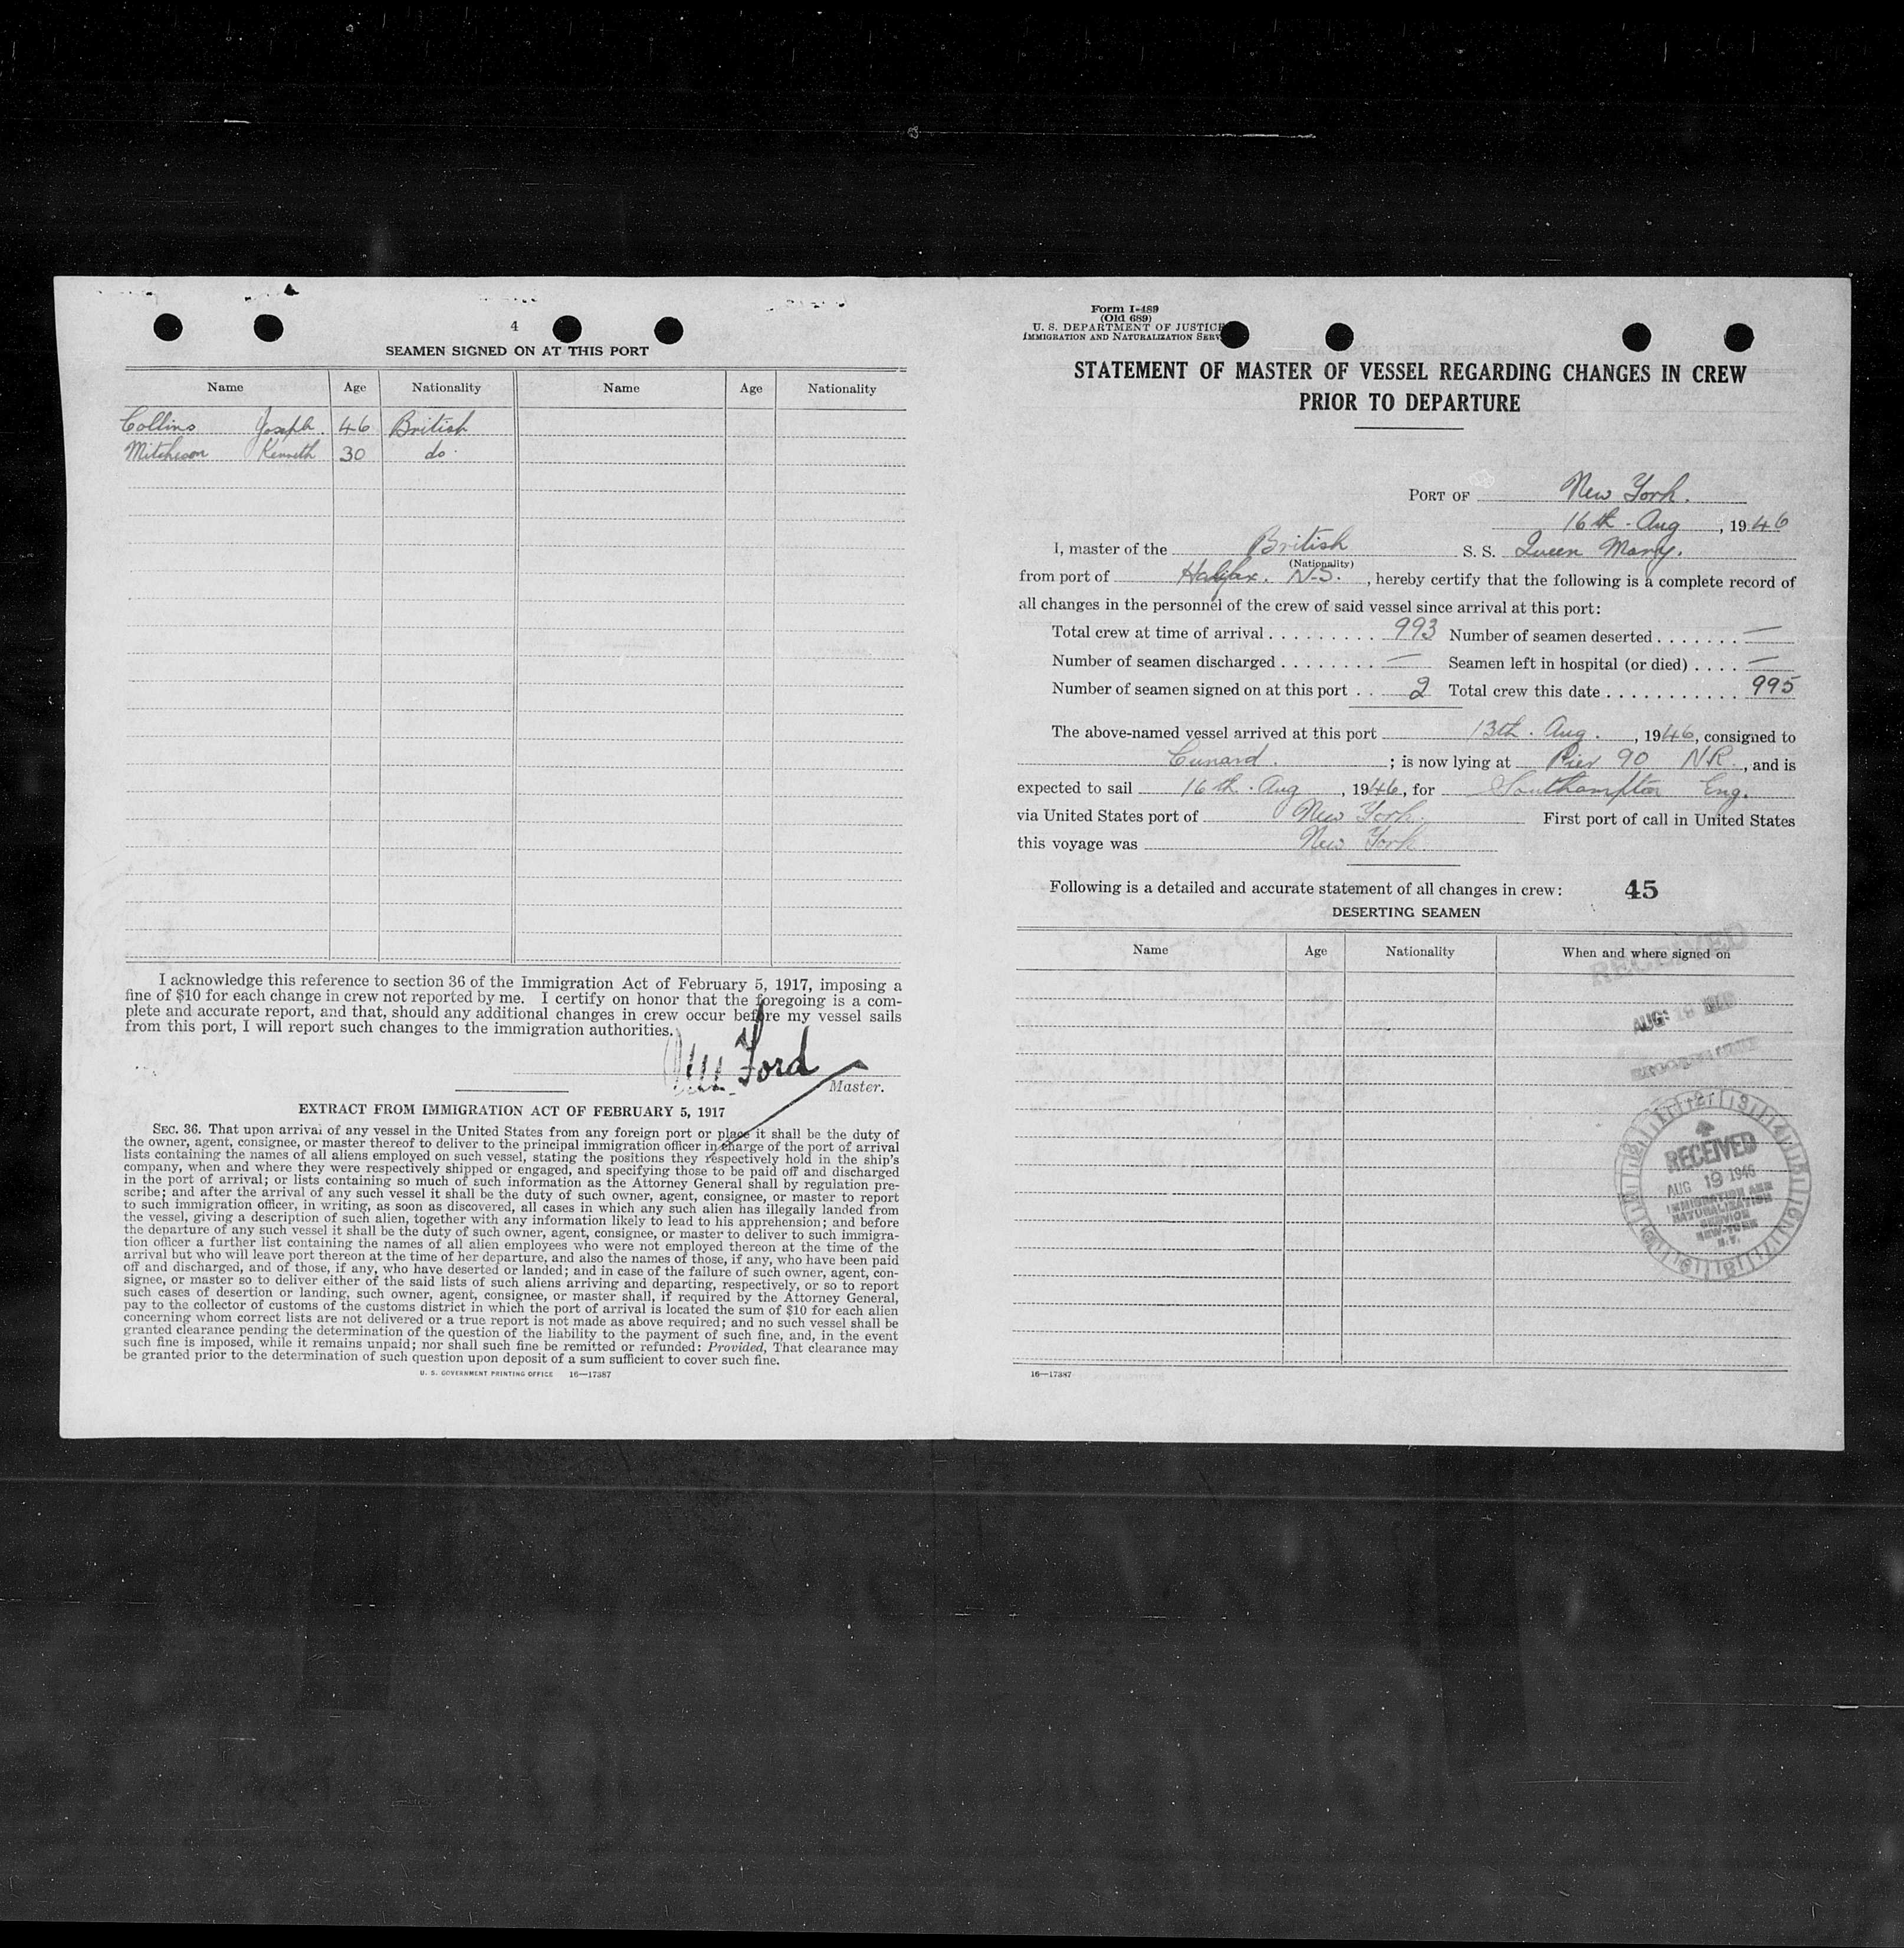 4
SEAMEN SIGNED ON AT THIS PORT
Name Age Nationality Name Age Nationality
Collins Joseph. 46 British
Mitcheson Kenneth 30 do.
I acknowledge this reference to section 36 of the Immigration Act of February 5, 1917, imposing a
fine of $10 for each change in crew not reported by me. I certify on honor that the foregoing is a com-
plete and accurate report, and that, should any additional changes in crew occur before my vessel sails
from this port, I will report such changes to the immigration authorities.
Ford
Master.
EXTRACT FROM IMMIGRATION ACT OF FEBRUARY 5, 1917
SEC. 36. That upon arrival of any vessel in the United States from any foreign port or place it shall be the duty of
the owner, agent, consignee, or master thereof to deliver to the principal immigration officer in charge of the port of arrival
lists containing the names of all aliens employed on such vessel, stating the positions they respectively hold in the ship's
company, when and where they were respectively shipped or engaged, and specifying those to be paid off and discharged
in the port of arrival; or lists containing so much of such information as the Attorney General shall by regulation pre-
scribe; and after the arrival of any such vessel it shall be the duty of such owner, agent, consignee, or master to report
to such immigration officer, in writing, as soon as discovered, all cases in which any such alien has illegally landed from
the vessel, giving a description of such alien, together with any information likely to lead to his apprehension; and before
the departure of any such vessel it shall be the duty of such owner, agent, consignee, or master to deliver to such immigra-
tion officer a further list containing the names of all alien employees who were not employed thereon at the time of the
arrival but who will leave port thereon at the time of her departure, and also the names of those, if any, who have been paid
off and discharged, and of those, if any, who have deserted or landed; and in case of the failure of such owner, agent, con-
signee, or master so to deliver either of the said lists of such aliens arriving and departing, respectively, or so to report
such cases of desertion or landing, such owner, agent, consignee, or master shall, if required by the Attorney General,
pay to the collector of customs of the customs district in which the port of arrival is located the sum of $10 for each alien
concerning whom correct lists are not delivered or a true report is not made as above required; and no such vessel shall be
granted clearance pending the determination of the question of the liability to the payment of such fine, and, in the event
such fine is imposed, while it remains unpaid; nor shall such fine be remitted or refunded: Provided, That clearance may
be granted prior to the determination of such question upon deposit of a sum sufficient to cover such fine.
U. S. GOVERNMENT PRINTING OFFICE 16—17387
Form I-489
(Old 689)
U. S. DEPARTMENT OF JUSTICE
IMMIGRATION AND NATURALIZATION SERV
STATEMENT OF MASTER OF VESSEL REGARDING CHANGES IN CREW
PRIOR TO DEPARTURE
PORT OF New York.
16th. Aug, 1946
I, master of the British S. S. Queen Mary.
(Nationality)
from port of Halifax. N.S., hereby certify that the following is a complete record of
all changes in the personnel of the crew of said vessel since arrival at this port:
Total crew at time of arrival . . . . . . . . . 993 Number of seamen deserted . . . . . . . —
Number of seamen discharged . . . . . . . . — Seamen left in hospital (or died) . . . . —
Number of seamen signed on at this port . . 2 Total crew this date . . . . . . . . . . . . 995
The above-named vessel arrived at this port 13th. Aug., 1946, consigned to
Cunard.; is now lying at Pier 90 N.R., and is
expected to sail 16th. Aug, 1946, for Southampton Eng.
via United States port of New York. First port of call in United States
this voyage was New York.
Following is a detailed and accurate statement of all changes in crew: 45
DESERTING SEAMEN
Name Age Nationality When and where signed on
RECEIVED
AUG 19
RECEIVED
AUG 19 1946
IMMIGRATION AND
NATURALIZATION
SERVICE
NEW YORK
N.Y.
16—17387